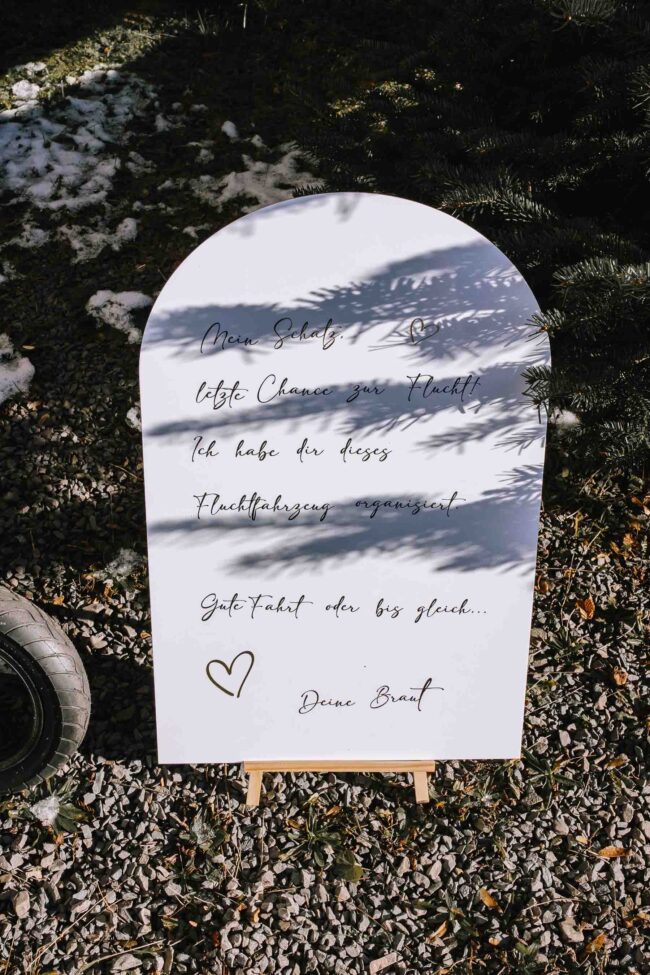 Mein Schatz,
letzte Chance zur Flucht!
Ich habe dir dieses
Fluchtfahrzeug organisiert.
Gute Fahrt oder bis gleich...
Deine Braut